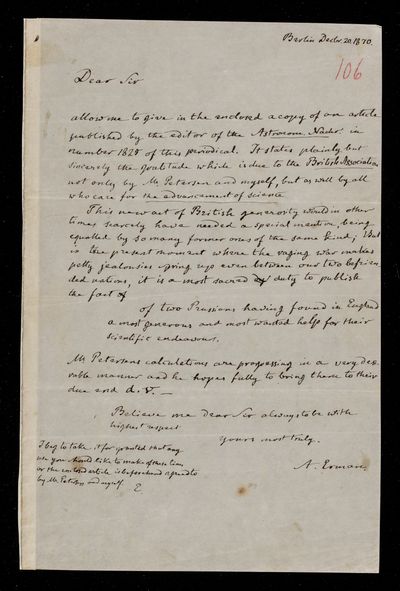 Berlin Decbr. 20. 1870.
106
Dear Sir
allow me to give in the enclosed a copy of an article
published by the editor of the Astronom. Nachr. in
number 1825 of this periodical. It states plainly but
sincerely the gratitude which is due to the British Association
not only by Mr Petersen and myself, but as well by all
who care for the advancement of science
This new act of British generosity would in other
times scarcely have needed a special mention, being
equalled by so many former ones of the same kind, but
in the present moment where the raging war makes
petty jealousies spring up even between our two befrien-
ded nations, it is a most sacred duty to publish
the fact of
of two Prussians having found in England
a most generous and most wanted help for their
scientific endeavours.
Mr Petersens calculations are progressing in a very desi-
rable manner and he hopes fully to bring them to their
due end d. V. —
Believe me Dear Sir always to be with
highest respect
yours most truly.
A. Erman
I beg to take it for granted that any
use you should like to make of these lines
or the enclosed article is beforehand agreed to
by Mr. Petersen and myself.
E.